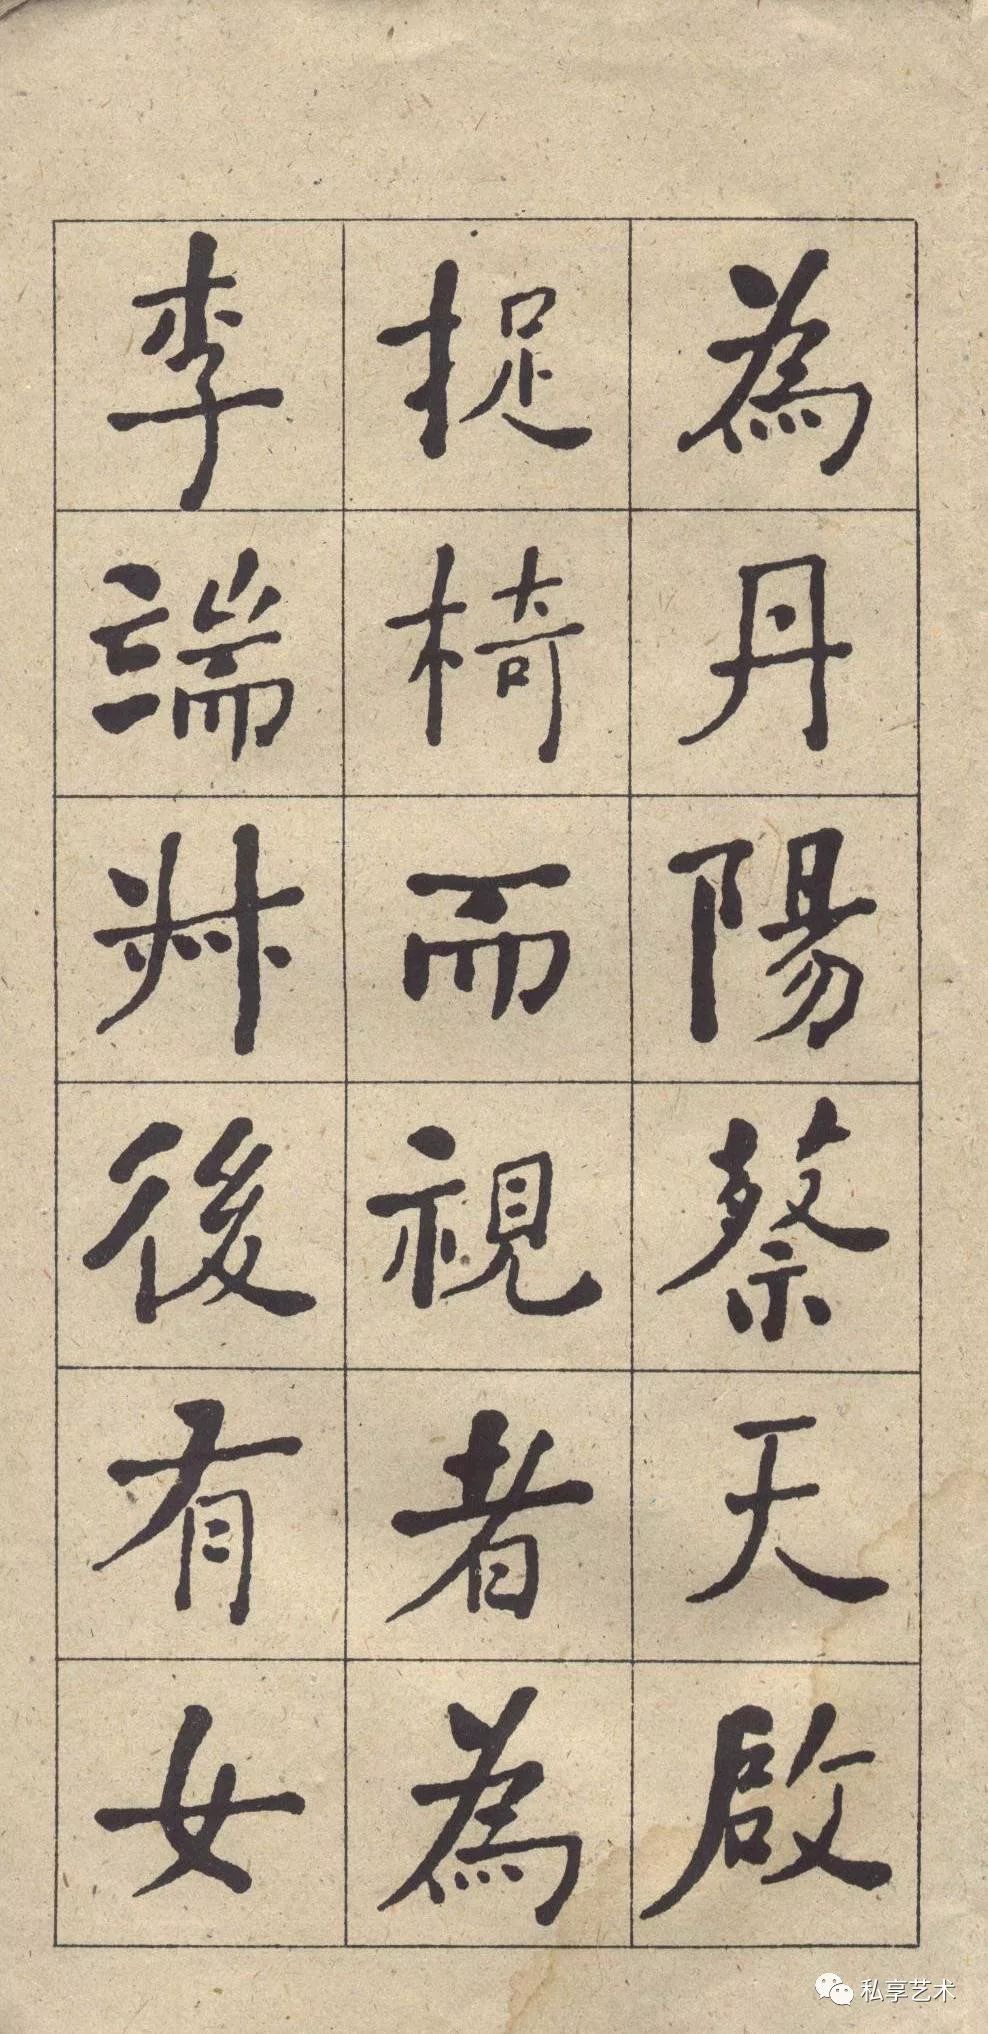 為丹陽蔡天啟
捉椅而視者為
李端叔後有女
私享艺术